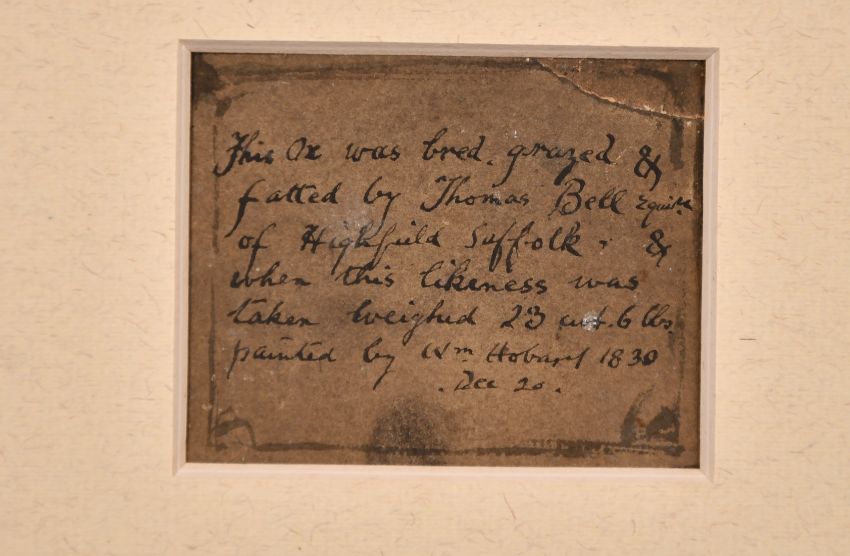 This Ox was bred. grazed &
fatted by Thomas Bell Equire
of Highfield Suffolk. &
when this likeness was
taken weighed 23 cwt. 6 lbs
painted by Wm Hobart 1830
. Dec 20 .